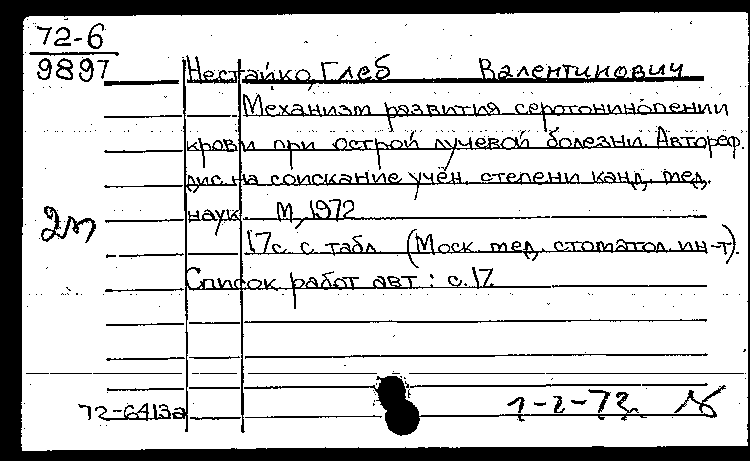 72-6
9897
Нестайко, Глеб Валентинович
Механизм развития серотонинопении
крови при острой лучевой болезни. Автореф.
дис. на соискание учён. степени канд. мед.
наук. М, 1972
2м
17с. с табл. (Моск. мед. стоматол. ин-т).
Список работ авт: с. 17.
72-6413а